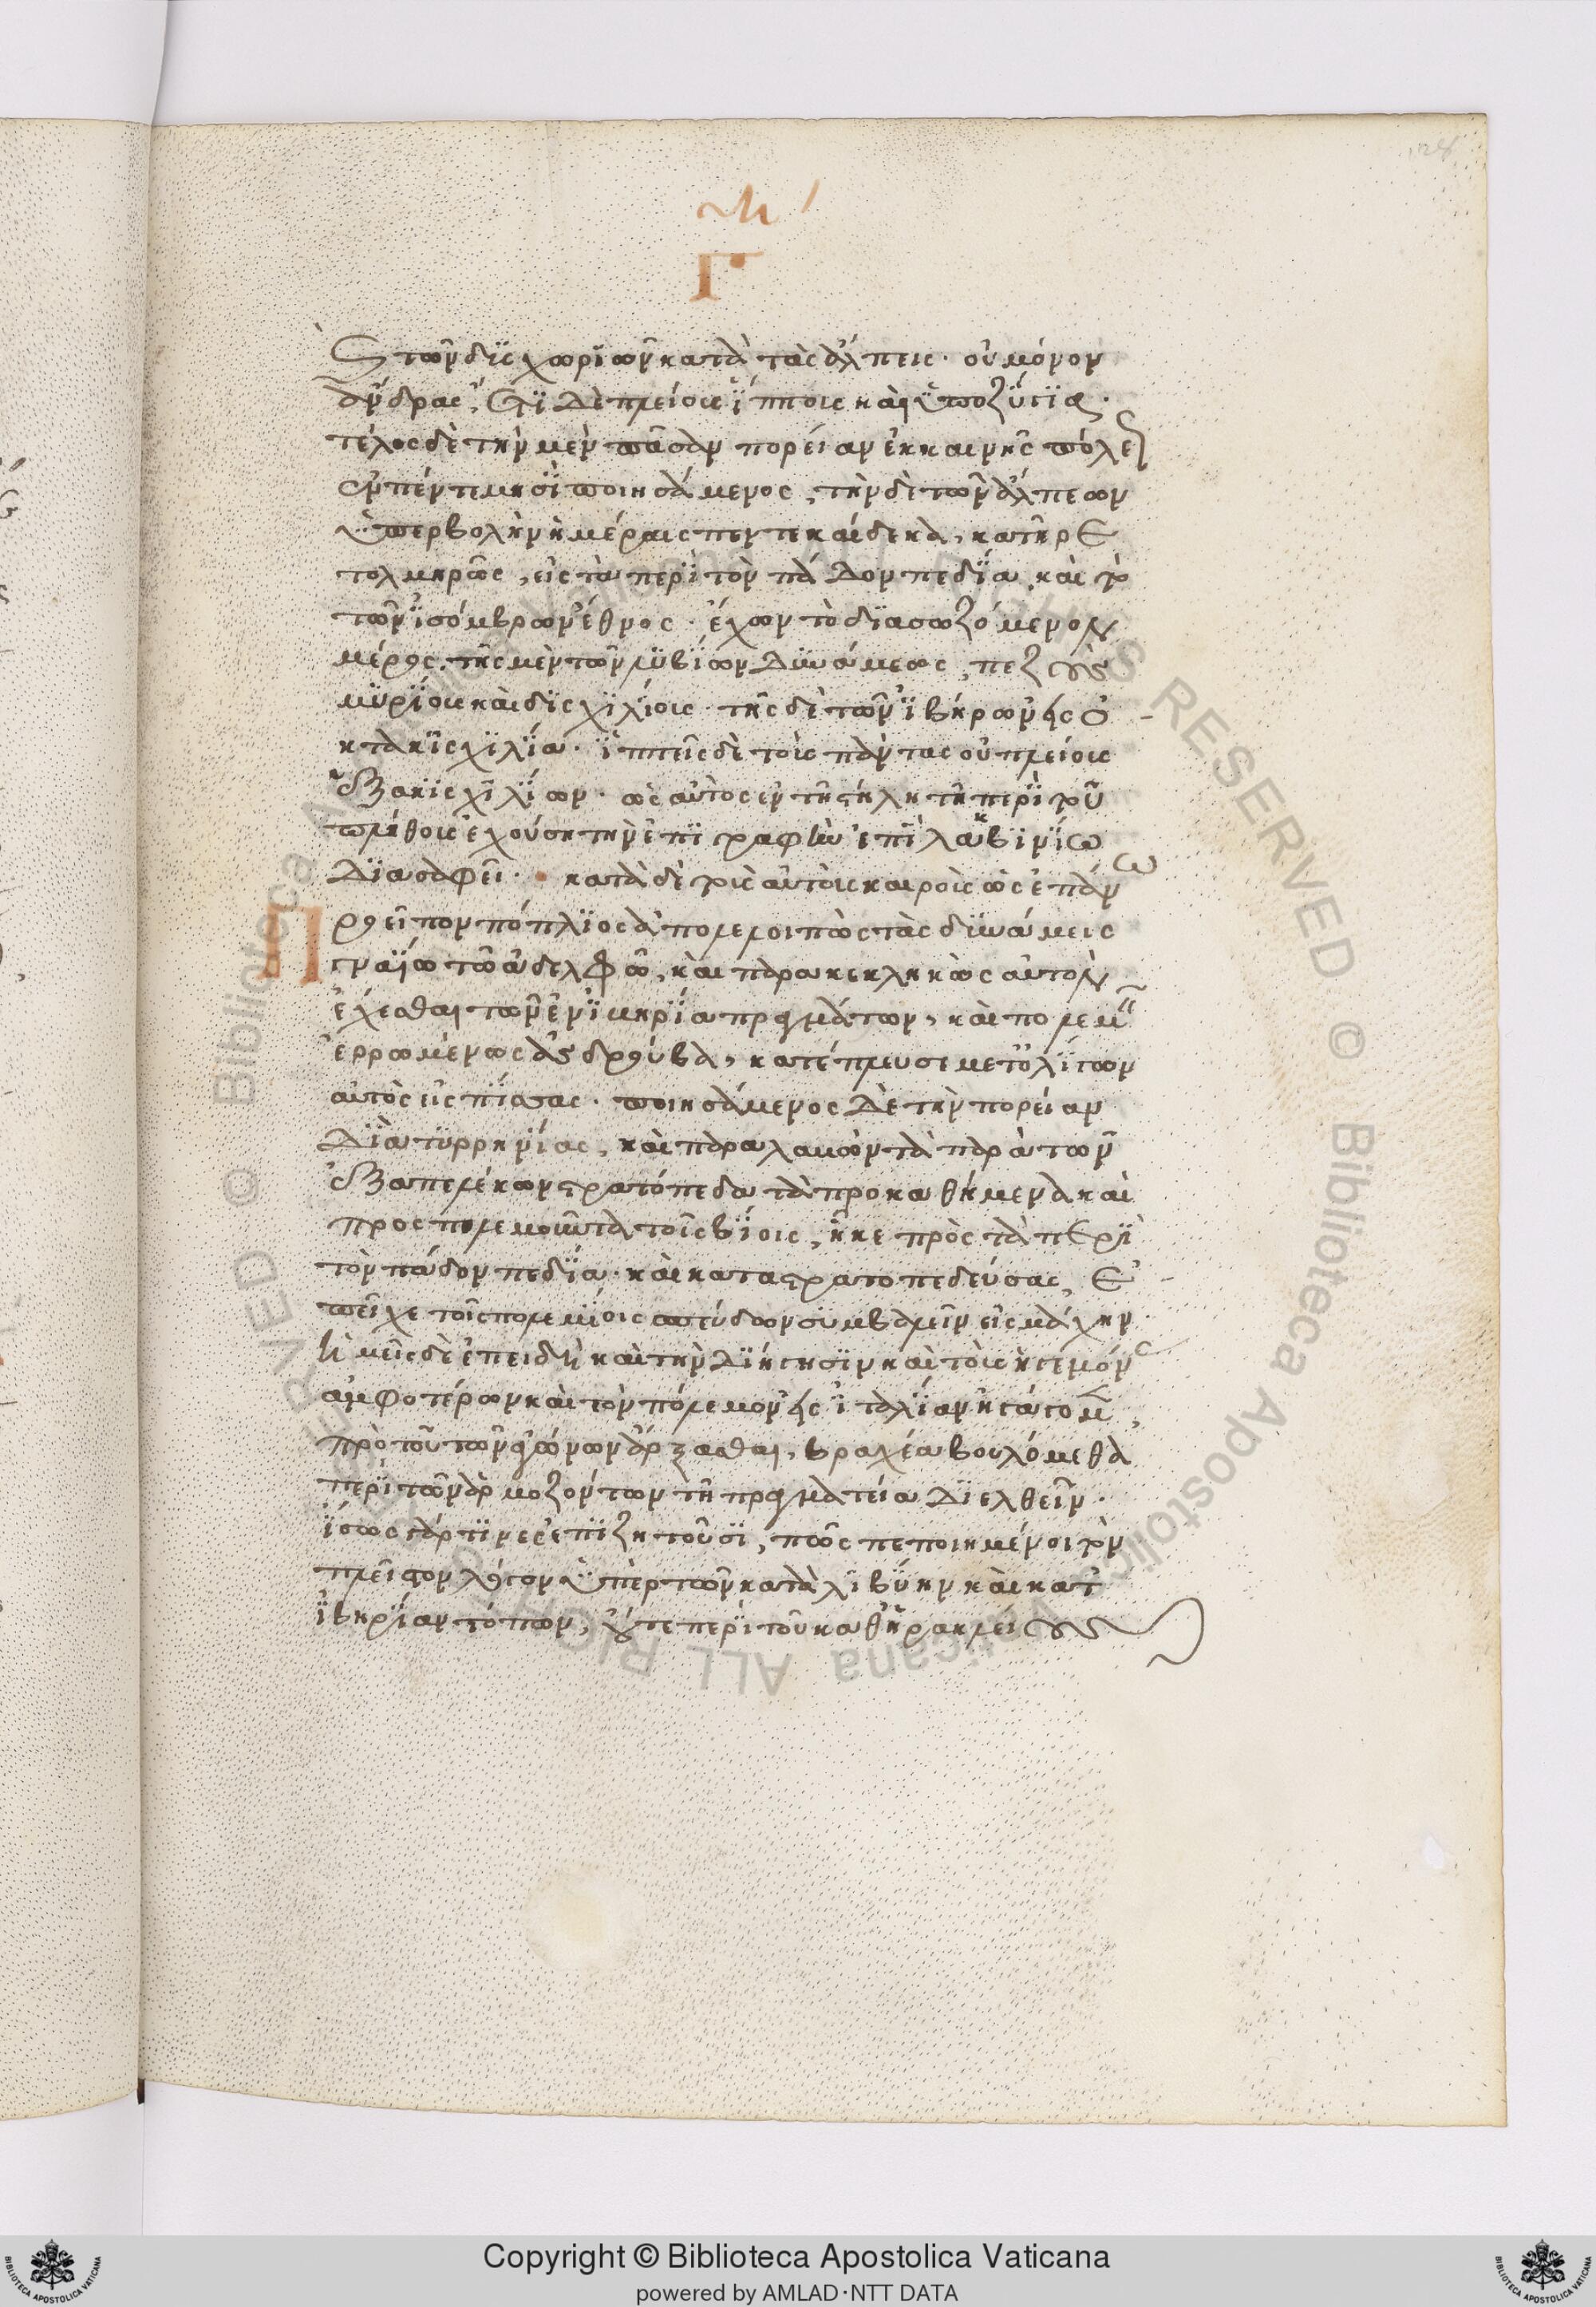 Γ
καὶ τῶν δυσχωριῶν κατὰ τὰς ἄλπεις· οὐ μόνον
ἄνδρας, ἔτι δὲ πλείους ἵππους καὶ ὑποζύγια·
τέλος δὲ τὴν μὲν πᾶσαν πορείαν ἐκ καινῆς πόλεως
ἐν πέντε μησὶ ποιησάμενος, τὴν δὲ τῶν ἄλπεων
ὑπερβολὴν ἡμέραις πεντεκαίδεκα, κατῆρε
τολμηρῶς, εἰς τὰ περὶ τὸν πάδον πεδία, καὶ τὸ
τῶν ἰσόμβρων ἔθνος· ἔχων τὸ διασωζόμενον
μέρος, τῆς μὲν τῶν λιβύων δυνάμεως, πεζοὺς
μυρίους καὶ δισχιλίους· τῆς δὲ τῶν ἰβήρων εἰς ὀ
κτακισχιλίους· ἱππεῖς δὲ τοὺς πάντας οὐ πλείους
ἑξακισχιλίων· ὡς αὐτὸς ἐν τῇ στήλῃ τῇ περὶ τοῦ
πλήθους ἐχούσῃ τὴν ἐπιγραφὴν ἐπὶ λακινίω
διασαφεῖ· κατὰ δὲ τοὺς αὐτοὺς καιροὺς ὡς ἐπάνω
ρον εἶπον πόπλιος ἀπολελοιπὼς τὰς δυνάμεις
γναΐω τῶ ἀδελφῶ, καὶ παρακεκληκὼς αὐτὸν
ἔχεσθαι τῶν ἐν ἰβηρία πραγμάτων, καὶ πολεμεῖν
ἐρρωμένως ἀσδρούβα, κατέπλευσε μετ' ὀλίγων
αὐτὸς εἰς πίσας· ποιησάμενος δὲ τὴν πορείαν
διὰ τυρρηνίας, καὶ παραλαβὼν τὰ παρὰ τῶν
ἑξαπελέκων στρατόπεδα τὰ προκαθήμενα καὶ
προσπολεμοῦντα τοῖς βοίοις, ἧκε πρὸς τὰ περὶ
τὸν πάδον πεδία· καὶ καταστρατοπεδεύσας, ἐ
πεῖχε τοῖς πολεμίοις σπεύδων συμβαλεῖν εἰς μάχην
ἡμεῖς δὲ ἐπειδὴ καὶ τὴν διήγησιν καὶ τοὺς ἡγεμόνας
ἀμφοτέρων καὶ τὸν πόλεμον εἰς ἰταλίαν ἠγάγομεν,
πρὸ τοῦ τῶν ἀγώνων ἄρξασθαι, βραχέα βουλόμεθα
περὶ τῶν ἁρμοζόντων τῇ πραγματεία διελθεῖν·
ἴσως γάρ τινες ἐπιζητοῦσι, πῶς πεποιημένοι τὸν
πλεῖστον λόγον ὑπὲρ τῶν κατὰ λιβύην καὶ κατ'
ἰβηρίαν τόπων, οὔτε περὶ τοῦ καθ' ἡρακλείους
Copyright © Biblioteca Apostolica Vaticana
powered by AMLAD·NTT DATA